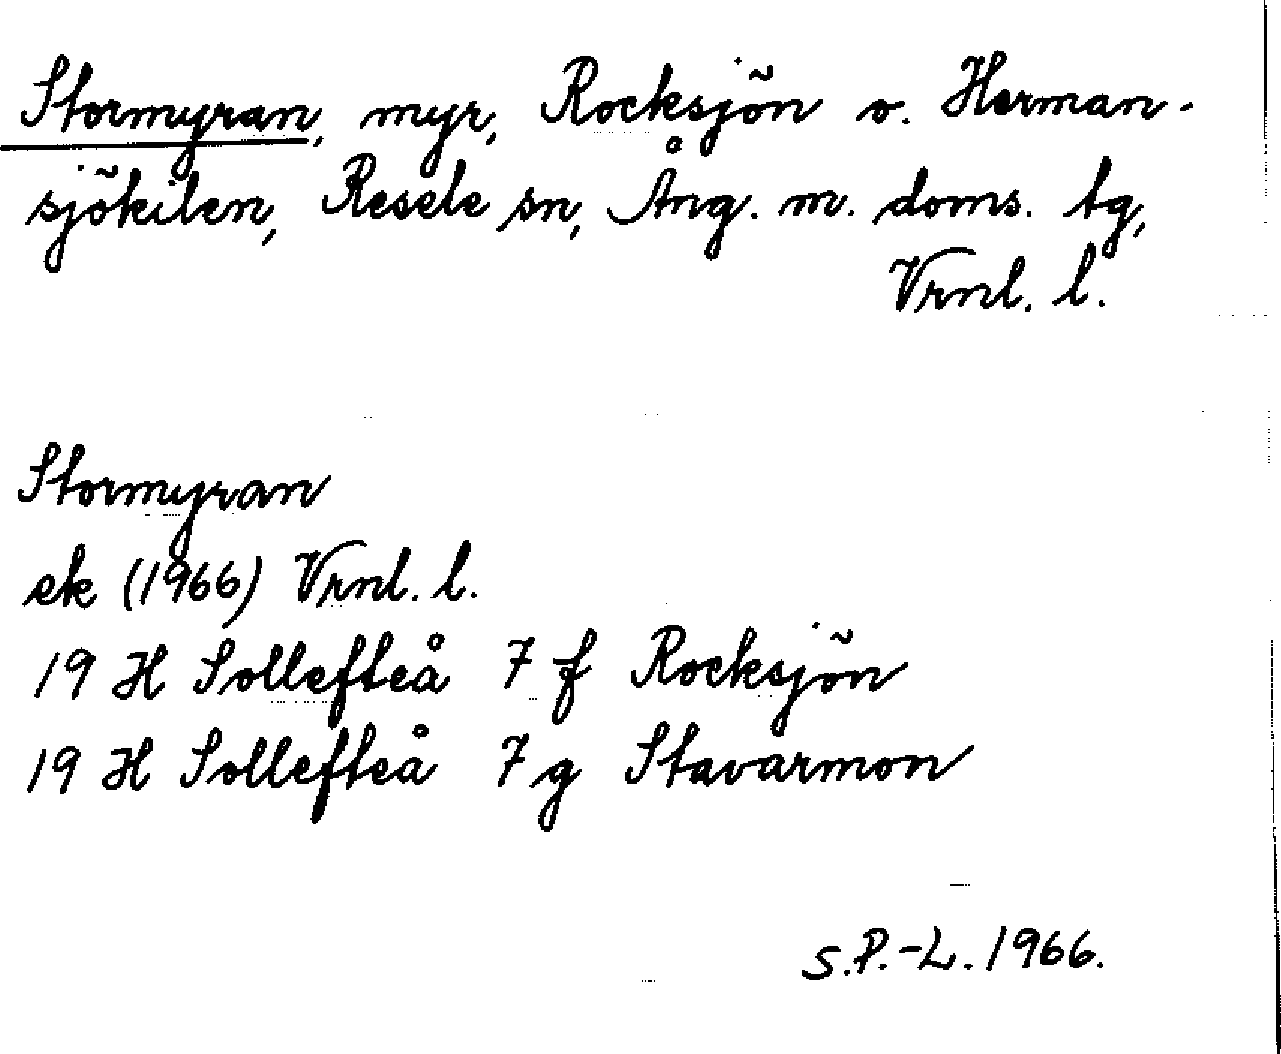 Stormyran, myr, Rocksjön o. Herman-
sjökilen, Resele sn, Ång. m. doms. tg,
Vrnl. l.
Stormyran
ek (1966) Vrnl. l.
19 H Sollefteå 7 f Rocksjön
19 H Sollefteå 7 g Stavarmon
S.P.-L. 1966.